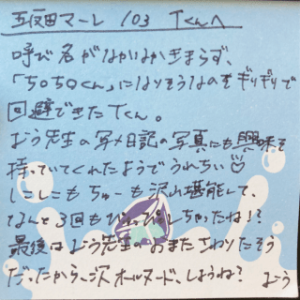 五反田マーレ 103 Tくんへ
呼び名がなかなかきまらず、
「ち□ち□くん」になりそうなのをギリギリで
回避できたTくん。
おう先生の写メ日記の写真にも興味を
持っていてくれたようでうれちい♡
しこしこも ちゅーも沢山堪能して、
なんと3回もぴゅっぴゅしちゃったね!?
最後はおう先生のおまた さわりたそう
だったから、次 オールヌード、しようね? おう